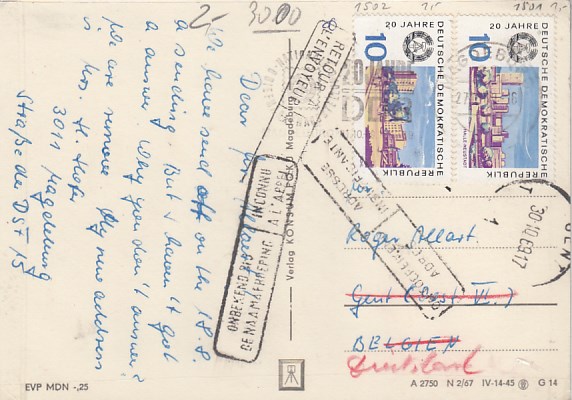 2,-
30.00
1502 1,-
1501 1,-
Dear
We have send off on the 18.8.
a sending. But I haven't got
a answer. Why you don't answer?
We are remove. My new address
is
3011 Magdeburg
Straße der DSF 15
RETOUR
A L'ENVOYEUR
ONBEKEND BIJ
DE NAAMAFROEPING
INCONNU
A L'APPEL
Verlag KONSUM FOTO Magdeburg
DEUTSCHE DEMOKRATISCHE REPUBLIK
20 JAHRE
10
DEUTSCHE DEMOKRATISCHE REPUBLIK
20 JAHRE
10
HALLE-NEUSTADT
20 JAHRE
DDR
ADRESSE
30.10.69.17
Roger Allart.
Gent (Oost-Vl.)
BELGIEN
EVP MDN -,25
A 2750 N 2/67 IV-14-45 G 14